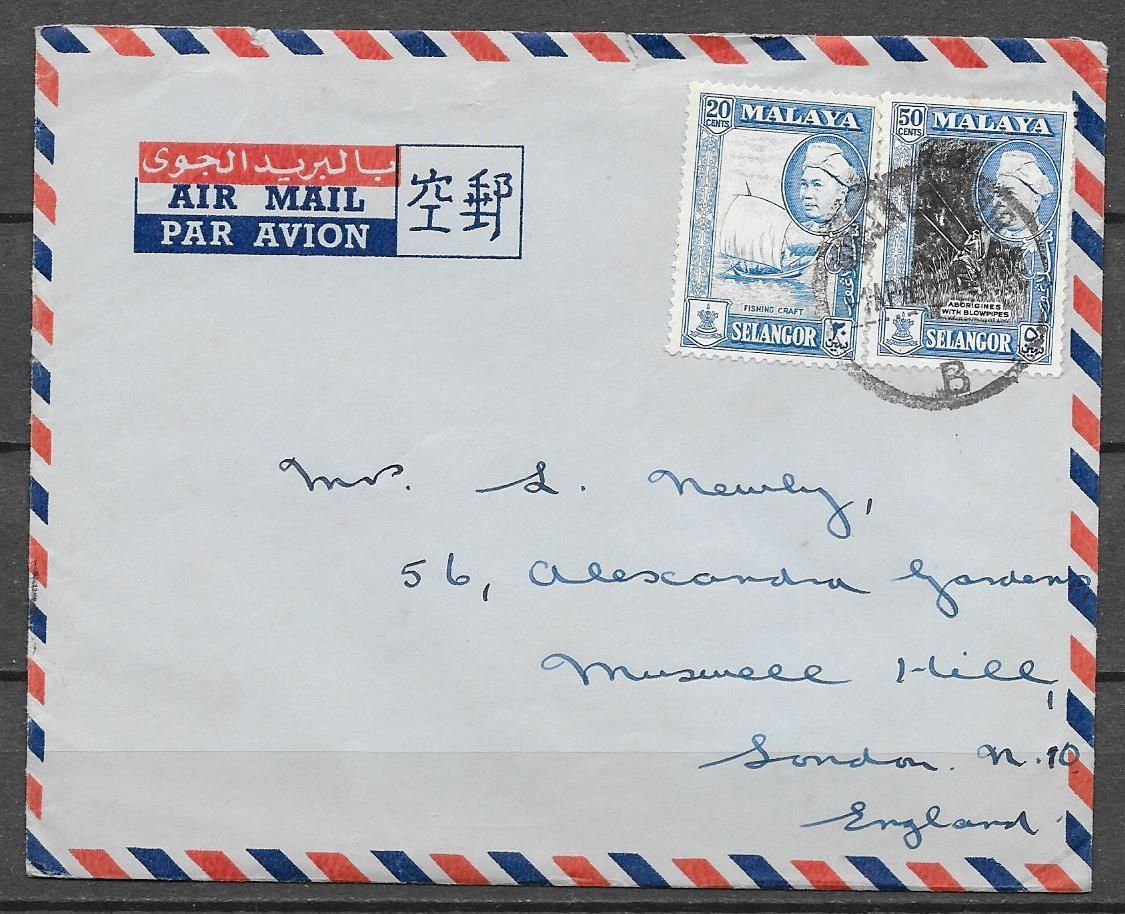 بالبريد الجوى
AIR MAIL
PAR AVION
空郵
20 CENTS MALAYA
FISHING CRAFT
SELANGOR ٢٠
50 CENTS MALAYA
ABORIGINES
WITH BLOWPIPES
SELANGOR ٥٠
B
Mr. L. Newby,
56, Alexandra Gardens
Muswell Hill,
London. N.10
England.